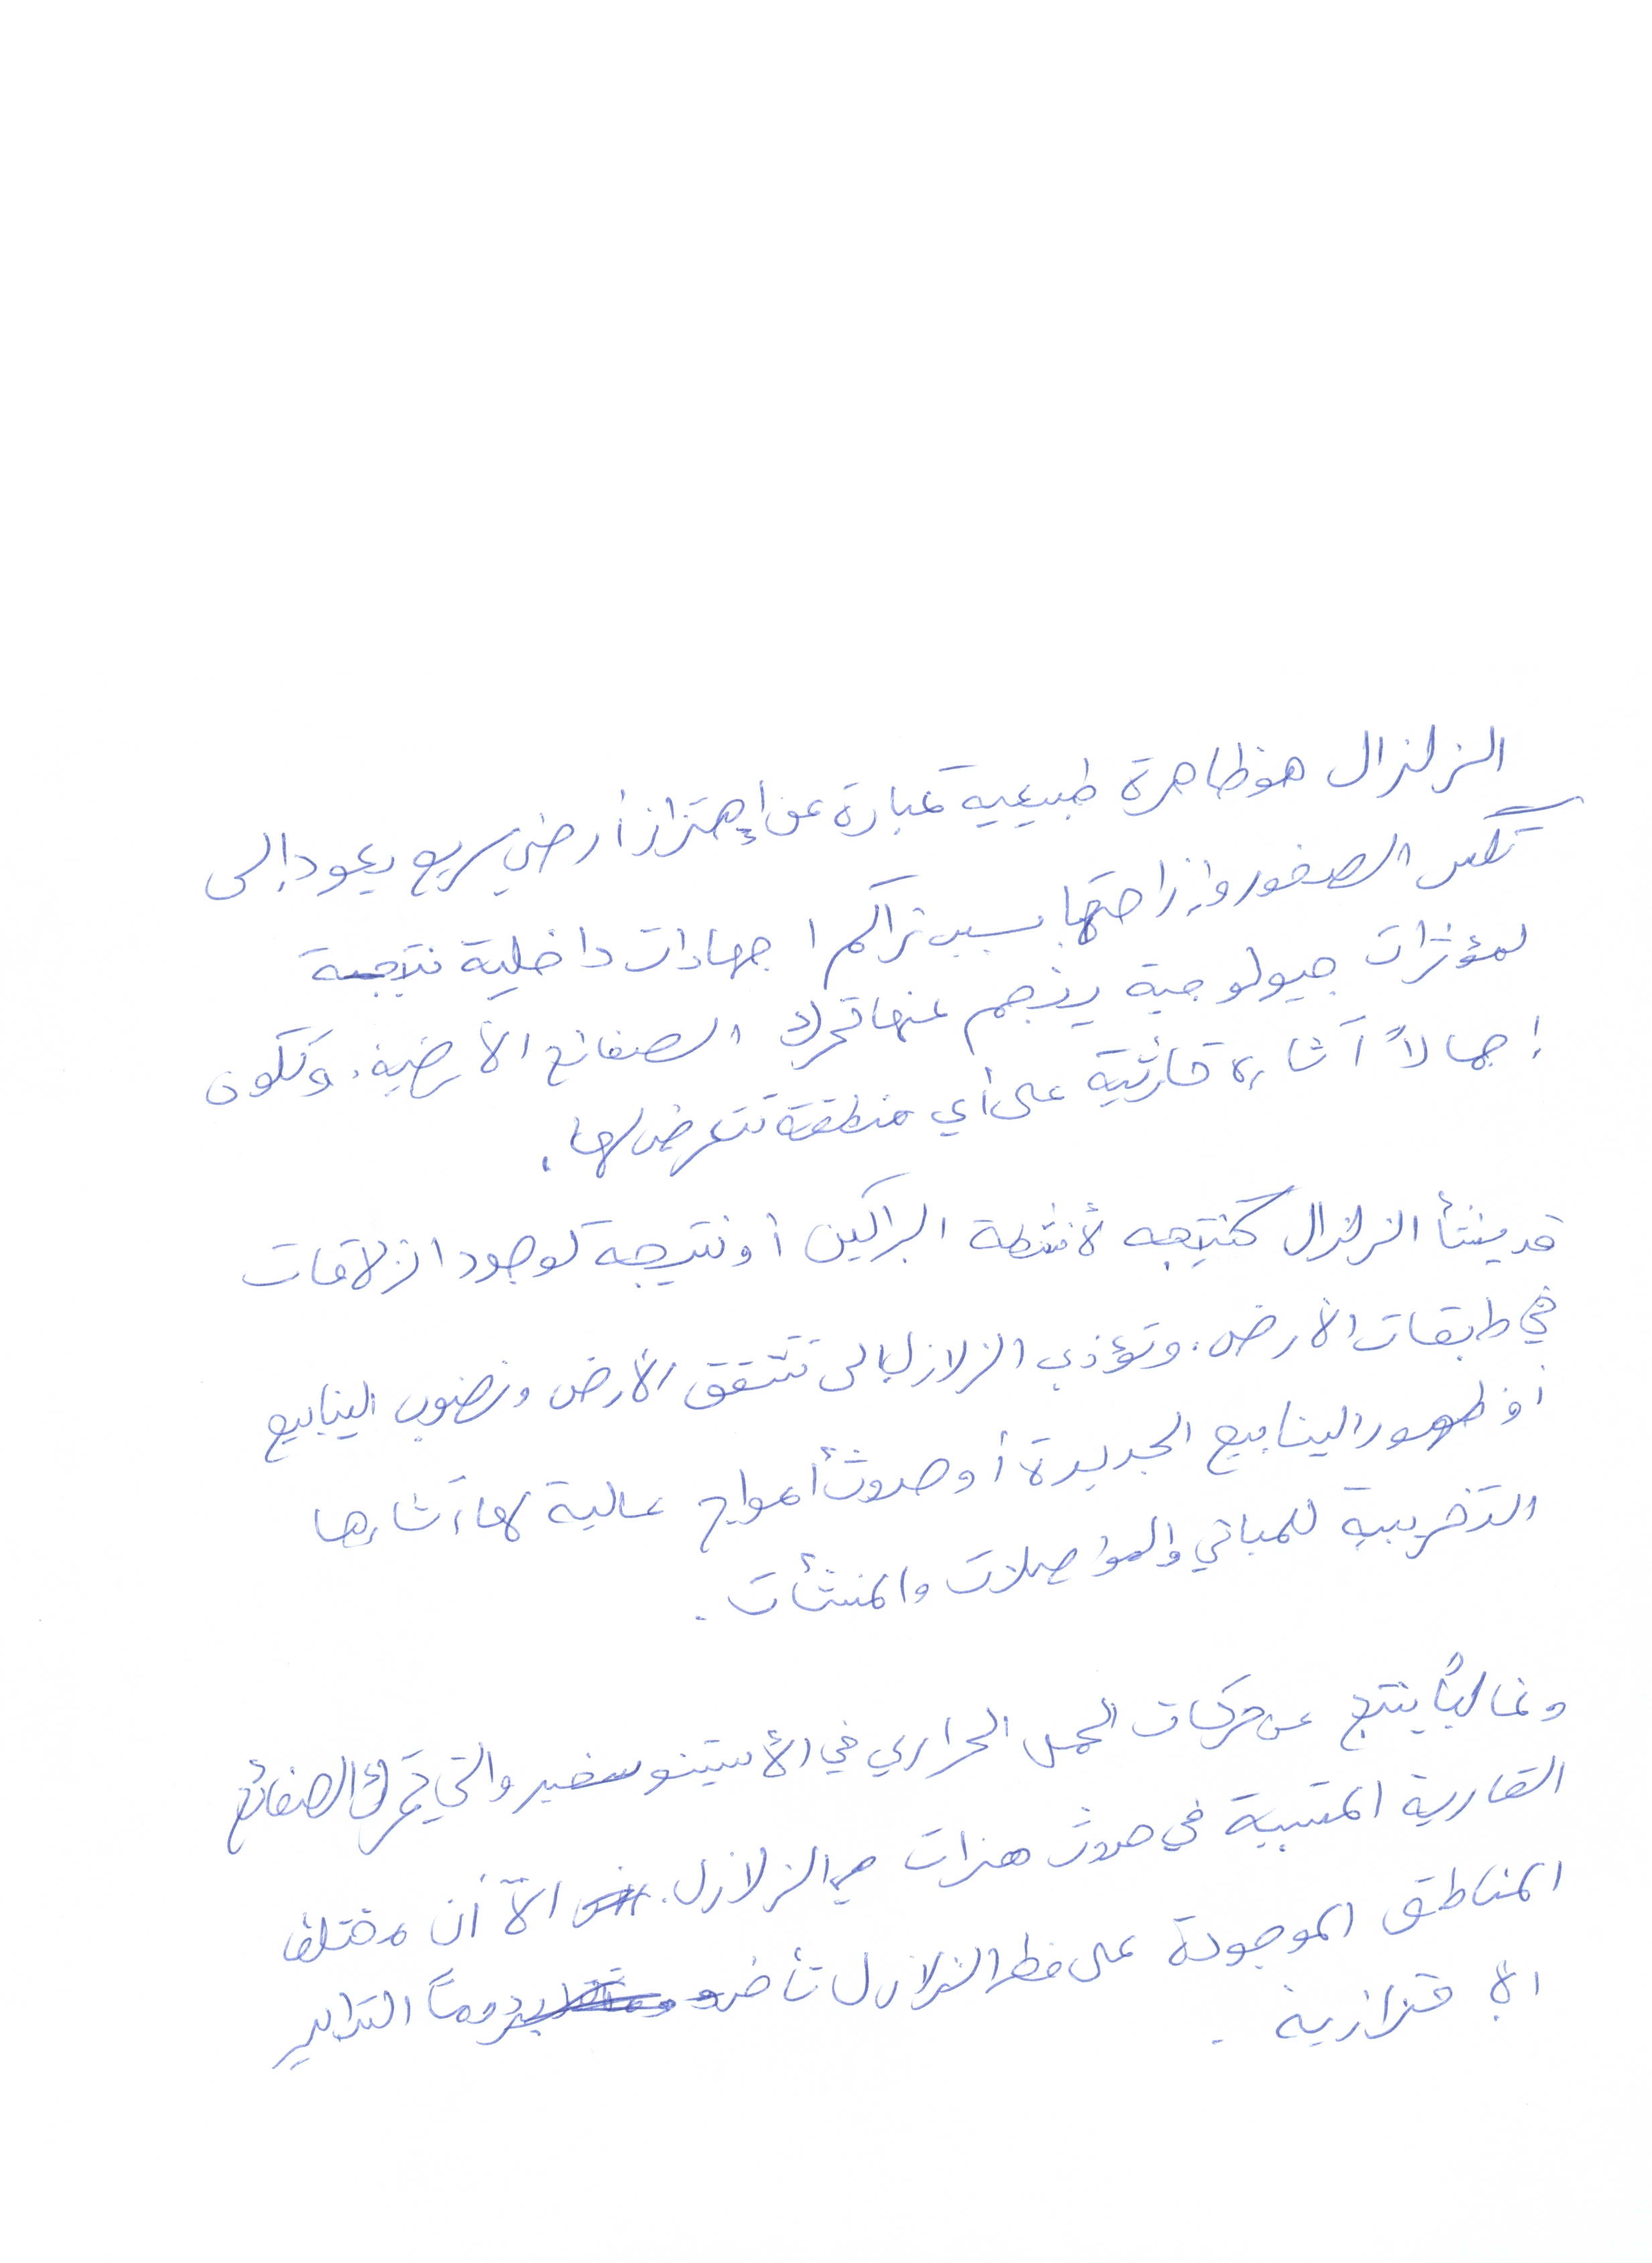 الزلزال هو ظاهرة طبيعية عبارة عن إهتزاز أرضي سريع يعود إلى
تكسر الصخور وإزاحتها بسبب تراكم اجهادات داخلية نتيجة
لمؤثرات جيولوجية ينجم عنها تحرك الصفائح الأرضية. وتكون
إجمالاً آثاره كارثية على أي منطقة تتعرض لها.
قد ينشأ الزلزال كنتيجه لأنشطة البراكين أو نتيجة لوجود انزلاقات
في طبقات الأرض. وتؤدي الزلازل إلى تشقق الأرض ونضوب الينابيع
أو ظهور الينابيع الجديدة أو حدوث أمواج عالية لها آثارها
التخريبية للمباني والمواصلات والمنشأت.
وغالباً ينتج عن حركات الحمل الحراري في الأستينوسفير والتي تحرك الصفائح
القارية المتسببة في حدوث هزات هي الزلازل. الاّ أن مختلف
المناطق الموجودة على خط الزلازل تأخذ دوماً التدابير
الإحترازية.